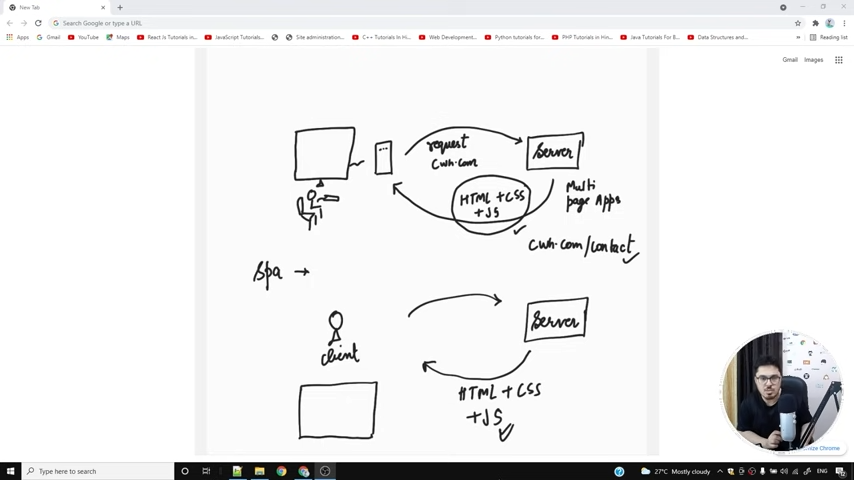 New Tab
Search Google or type a URL
Apps
Gmail
YouTube
Maps
React Js Tutorials in...
JavaScript Tutorials...
Site administration...
C++ Tutorials In H...
Web Development...
Python tutorials for...
PHP Tutorials in Hin...
Java Tutorials For B...
Data Structures and...
Reading list
Gmail Images
request
cwh.com
Server
HTML + CSS
+ JS
Multi
page Apps
cwh.com/contact
Spa →
Server
client
HTML + CSS
+ JS
Customize Chrome
Type here to search
27°C Mostly cloudy
ENG